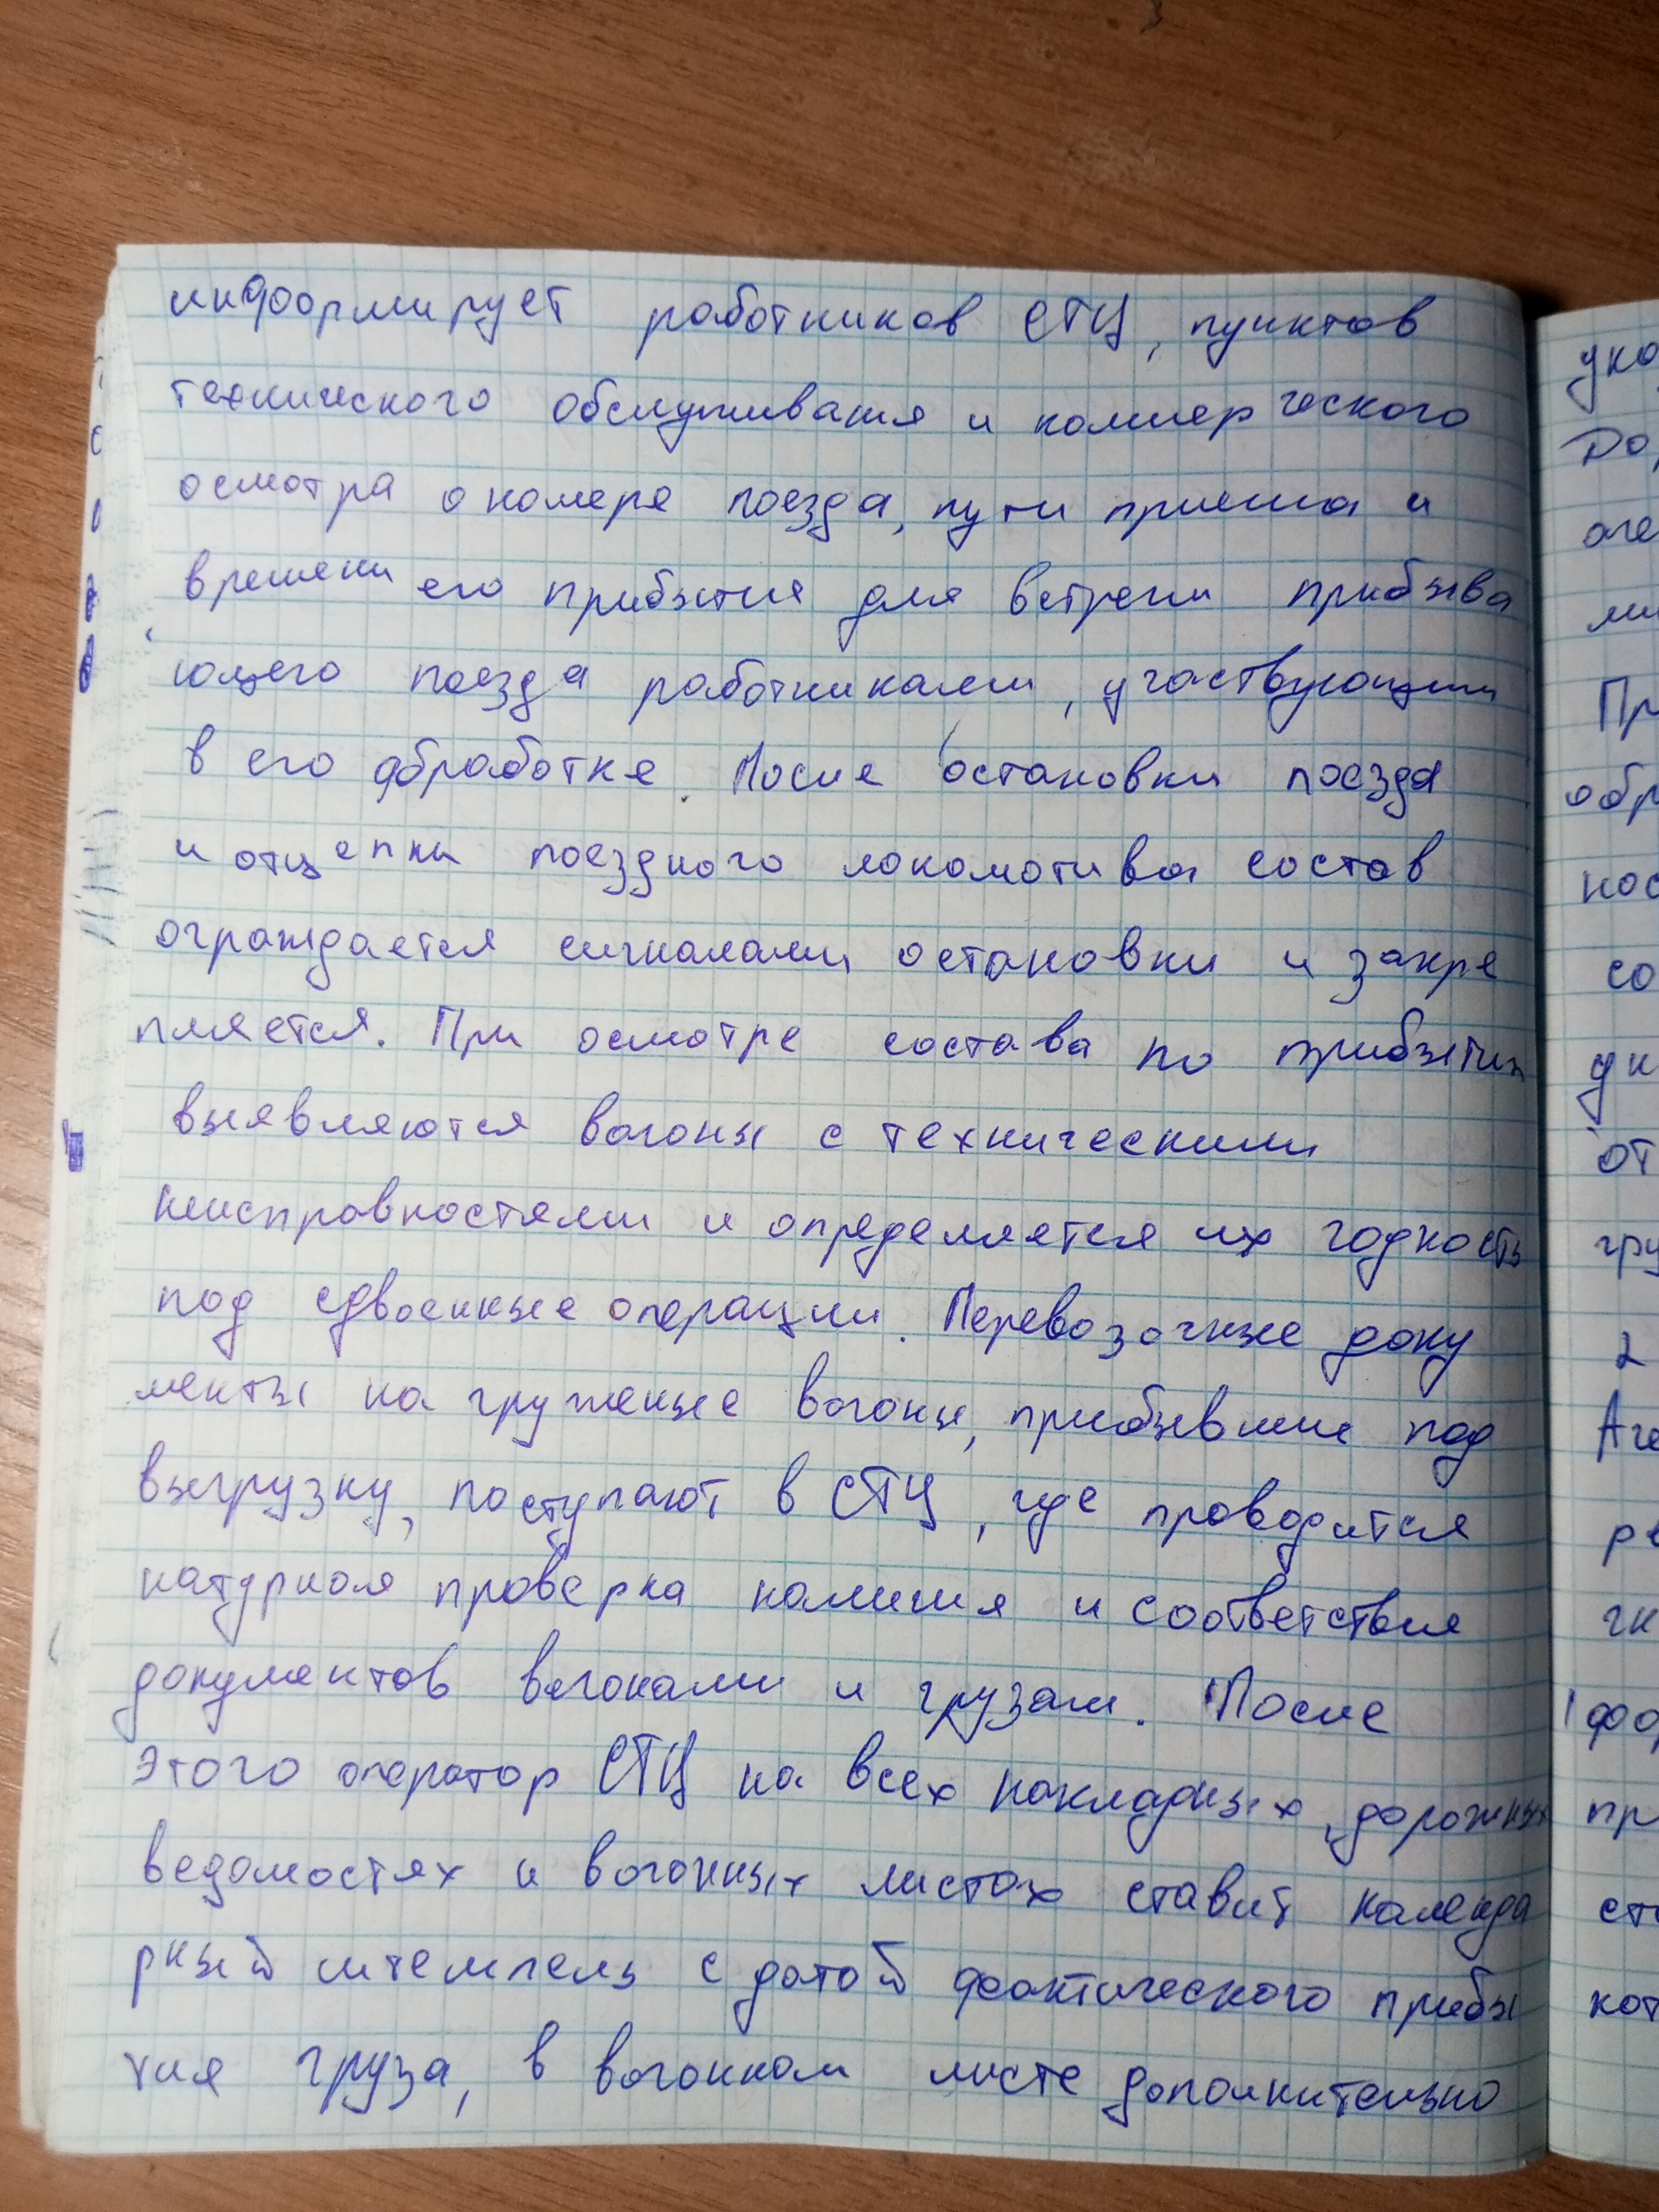 информирует работников СТЦ, пунктов
технического обслуживания и коммерческого
осмотра о номере поезда, пути приема и
времени его прибытия для встречи прибыва
ющего поезда работниками, участвующими
в его обработке. После остановки поезда
и отцепки поездного локомотива состав
ограждается сигналами остановки и закре
пляется. При осмотре состава по прибытии
выявляются вагоны с техническими
неисправностями и определяется их годность
под сдвоенные операции. Перевозочные доку
менты на груженые вагоны, прибывшие под
выгрузку, поступают в СТЦ, где проводится
натурная проверка наличия и соответствия
документов вагонами и грузам. После
этого оператор СТЦ на всех накладных, дорожных
ведомостях и вагонных листах ставит календа
рный штемпель с датой фактического прибы
тия груза, в вагонном листе дополнительно
ука
До
аге
ми
Пр
обр
нос
со
дн
от
гру
2
Аге
ре
чн
фо
пр
ст
кот